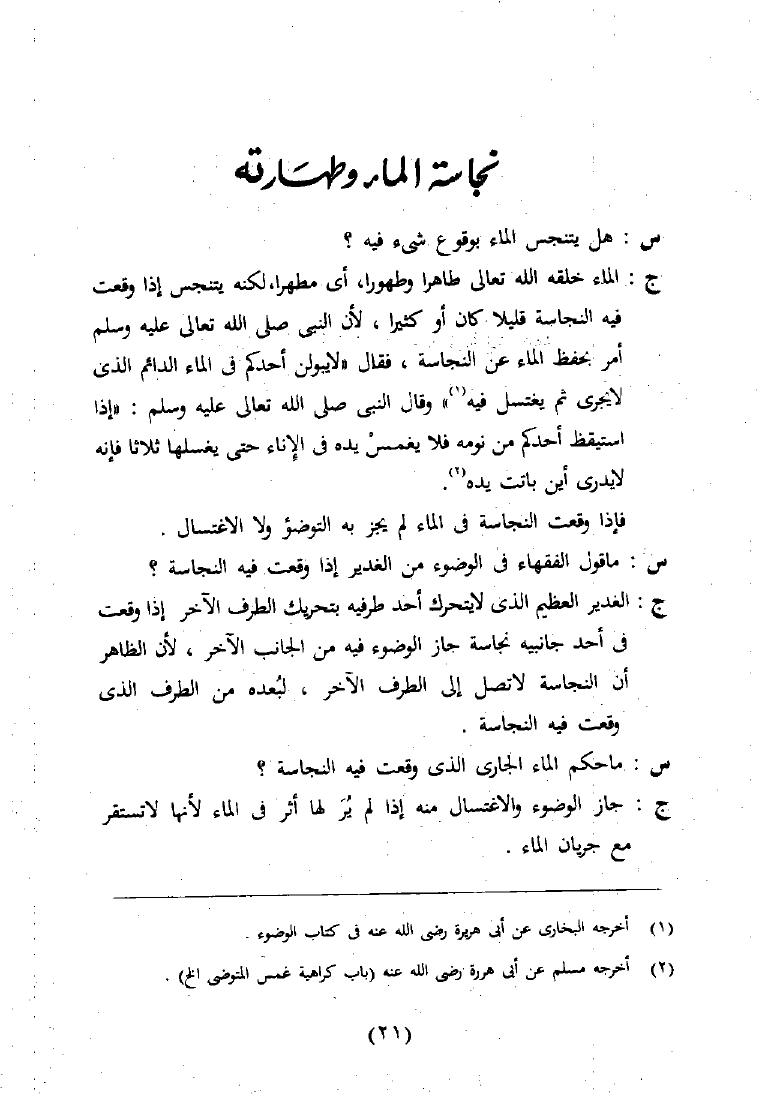 نجاسة الماء وطهَارته
س : هل يتنجس الماء بوقوع شىء فيه ؟
ج : الماء خلقه الله تعالى طاهرا وطهورا، أى مطهرا، لكنه يتنجس إذا وقعت
فيه النجاسة قليلا كان أو كثيرا ، لأن النبى صلى الله تعالى عليه وسلم
أمر بحفظ الماء عن النجاسة ، فقال «لايبولن أحدكم فى الماء الدائم الذى
لايجرى ثم يغتسل فيه(١)» وقال النبى صلى الله تعالى عليه وسلم : «إذا
استيقظ أحدكم من نومه فلا يغمسْ يده فى الإناء حتى يغسلها ثلاثا فإنه
لايدرى أين باتت يده(٢).
فإذا وقعت النجاسة فى الماء لم يجز به التوضؤ ولا الاغتسال .
س : ماقول الفقهاء فى الوضوء من الغدير إذا وقعت فيه النجاسة ؟
ج : الغدير العظيم الذى لايتحرك أحد طرفيه بتحريك الطرف الآخر إذا وقعت
فى أحد جانبيه نجاسة جاز الوضوء فيه من الجانب الآخر ، لأن الظاهر
أن النجاسة لاتصل إلى الطرف الآخر ، لبُعده من الطرف الذى
وقعت فيه النجاسة .
س : ماحكم الماء الجارى الذى وقعت فيه النجاسة ؟
ج : جاز الوضوء والاغتسال منه إذا لم يُرَ لها أثر فى الماء لأنها لاتستقر
مع جريان الماء .
(١) أخرجه البخارى عن أبى هريرة رضى الله عنه فى كتاب الوضوء .
(٢) أخرجه مسلم عن أبى هررة رضى الله عنه (باب كراهية غمس المتوضى الخ) .
(٢١)